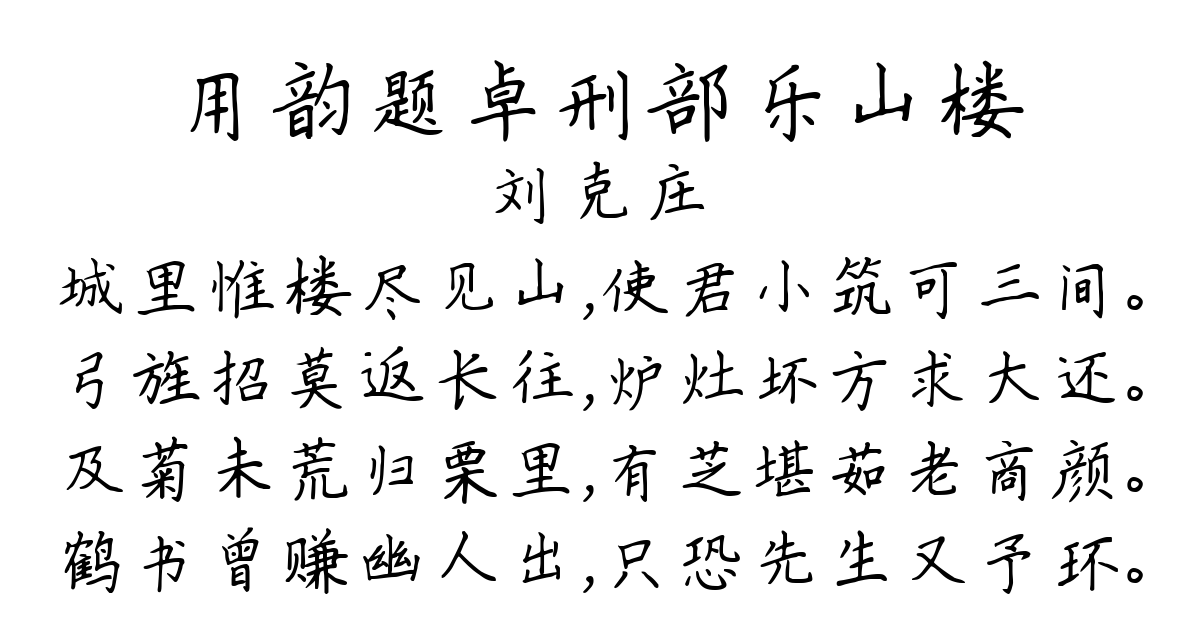 用韵题卓刑部乐山楼
刘克庄
城里惟楼尽见山,使君小筑可三间。
弓旌招莫返长往,炉灶坏方求大还。
及菊未荒归栗里,有芝堪茹老商颜。
鹤书曾赚幽人出,只恐先生又予环。